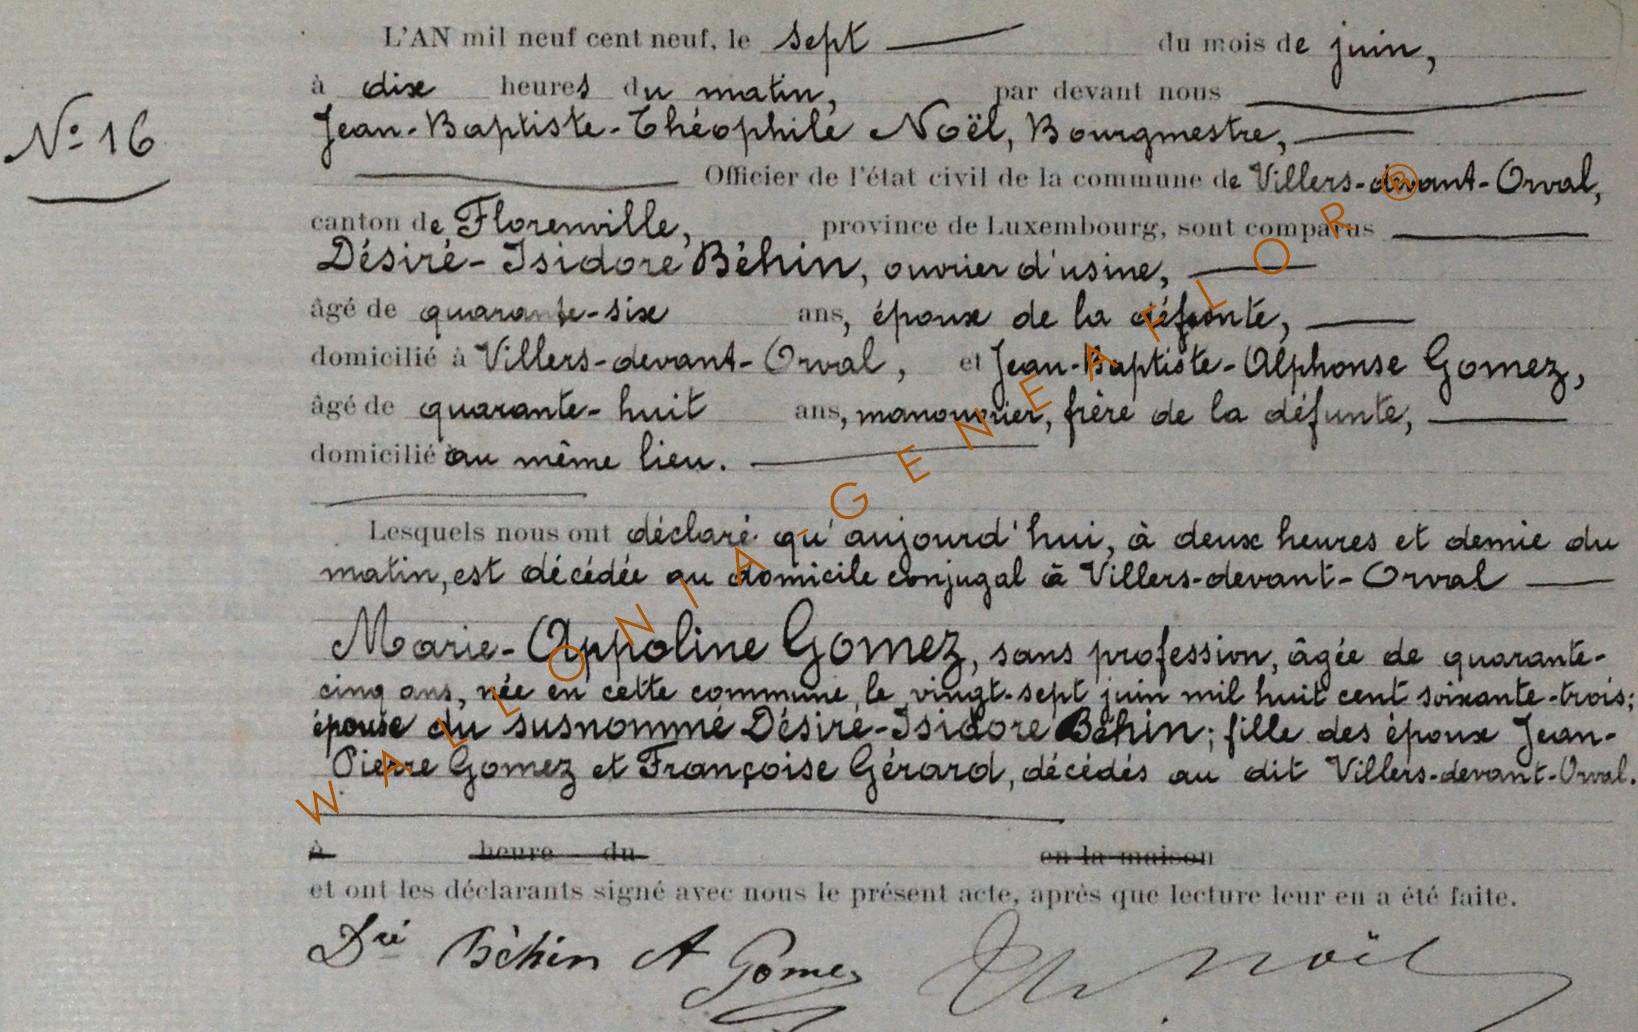 L'AN mil neuf cent neuf, le sept du mois de juin,
à dix heures du matin, par devant nous
Jean-Baptiste-Théophile Noël, Bourgmestre,
N° 16
Officier de l'état civil de la commune de Villers-devant-Orval,
canton de Florenville, province de Luxembourg, sont comparus
Désiré-Isidore Béhin, ouvrier d'usine,
âgé de quarante-six ans, époux de la défunte,
domicilié à Villers-devant-Orval, et Jean-Baptiste-Alphonse Gomez,
âgé de quarante-huit ans, manouvrier, frère de la défunte,
domicilié au même lieu.
Lesquels nous ont déclaré qu'aujourd'hui, à deux heures et demie du
matin, est décédée au domicile conjugal à Villers-devant-Orval
Marie-Appoline Gomez, sans profession, âgée de quarante-
cinq ans, née en cette commune, le vingt-sept juin mil huit cent soixante-trois;
épouse du susnommé Désiré-Isidore Béhin; fille des époux Jean-
Pierre Gomez et Françoise Gérard, décédés au dit Villers-devant-Orval.
à heure du en la maison
et ont les déclarants signé avec nous le présent acte, après que lecture leur en a été faite.
Dré Béhin A Gomez Th Noël
WALLONIA-GENEAFLOR®